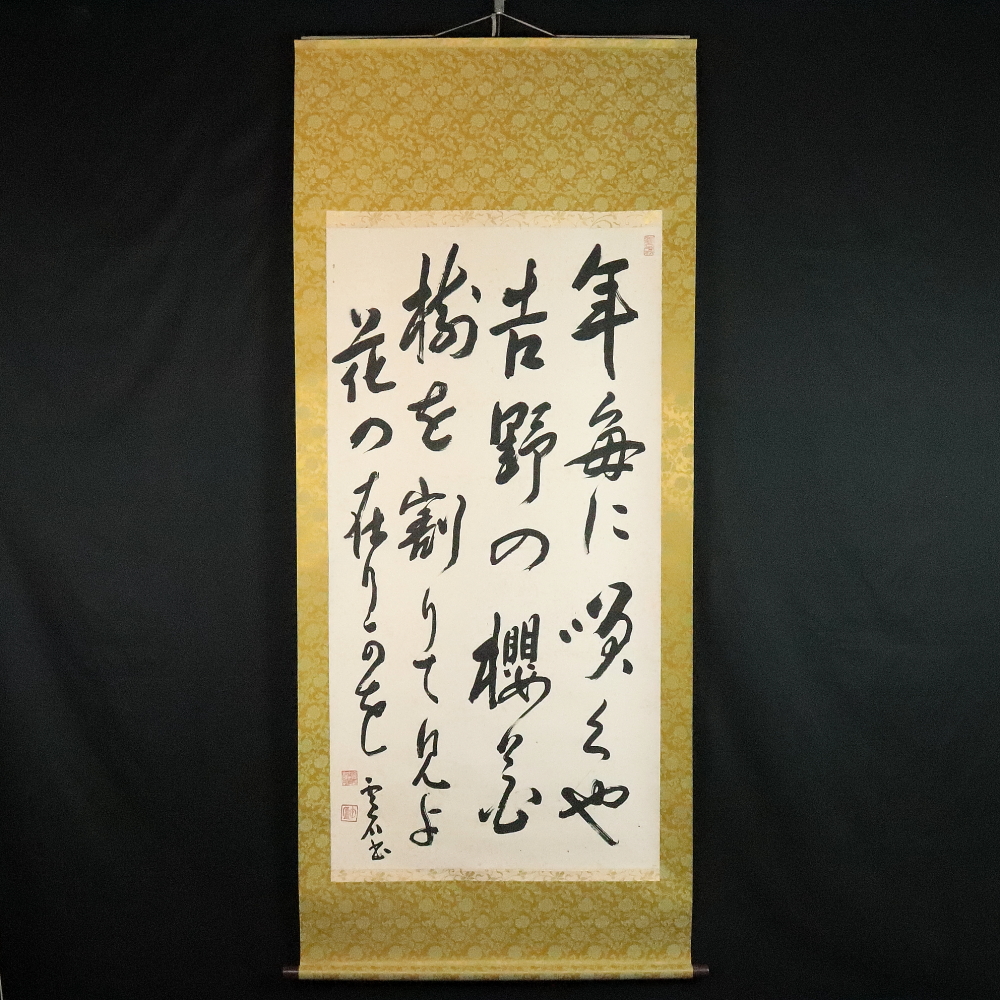 年毎に咲くや
吉野の櫻花
樹を割りて見よ
花の在りかを
雲石書